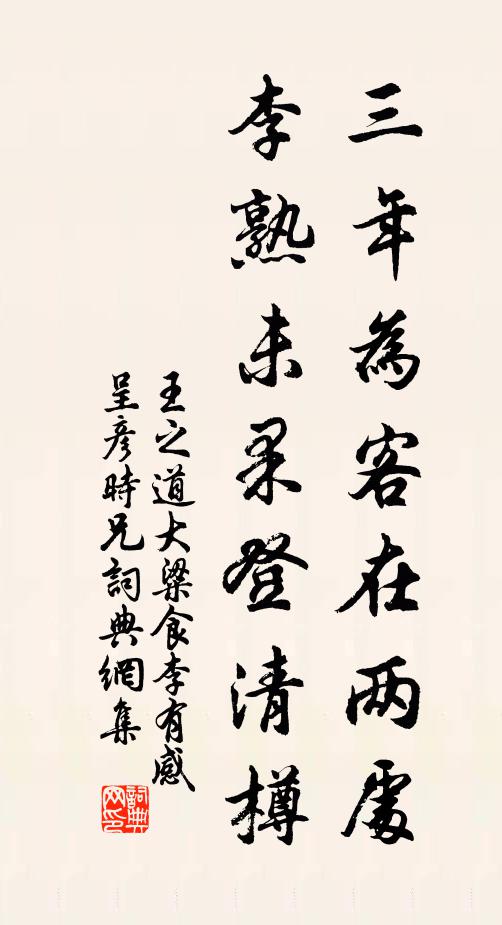 三年為客在两處
李熟未果登清樽
王之道大梁食李有感
呈彦時兄詞典網集
詞典网印